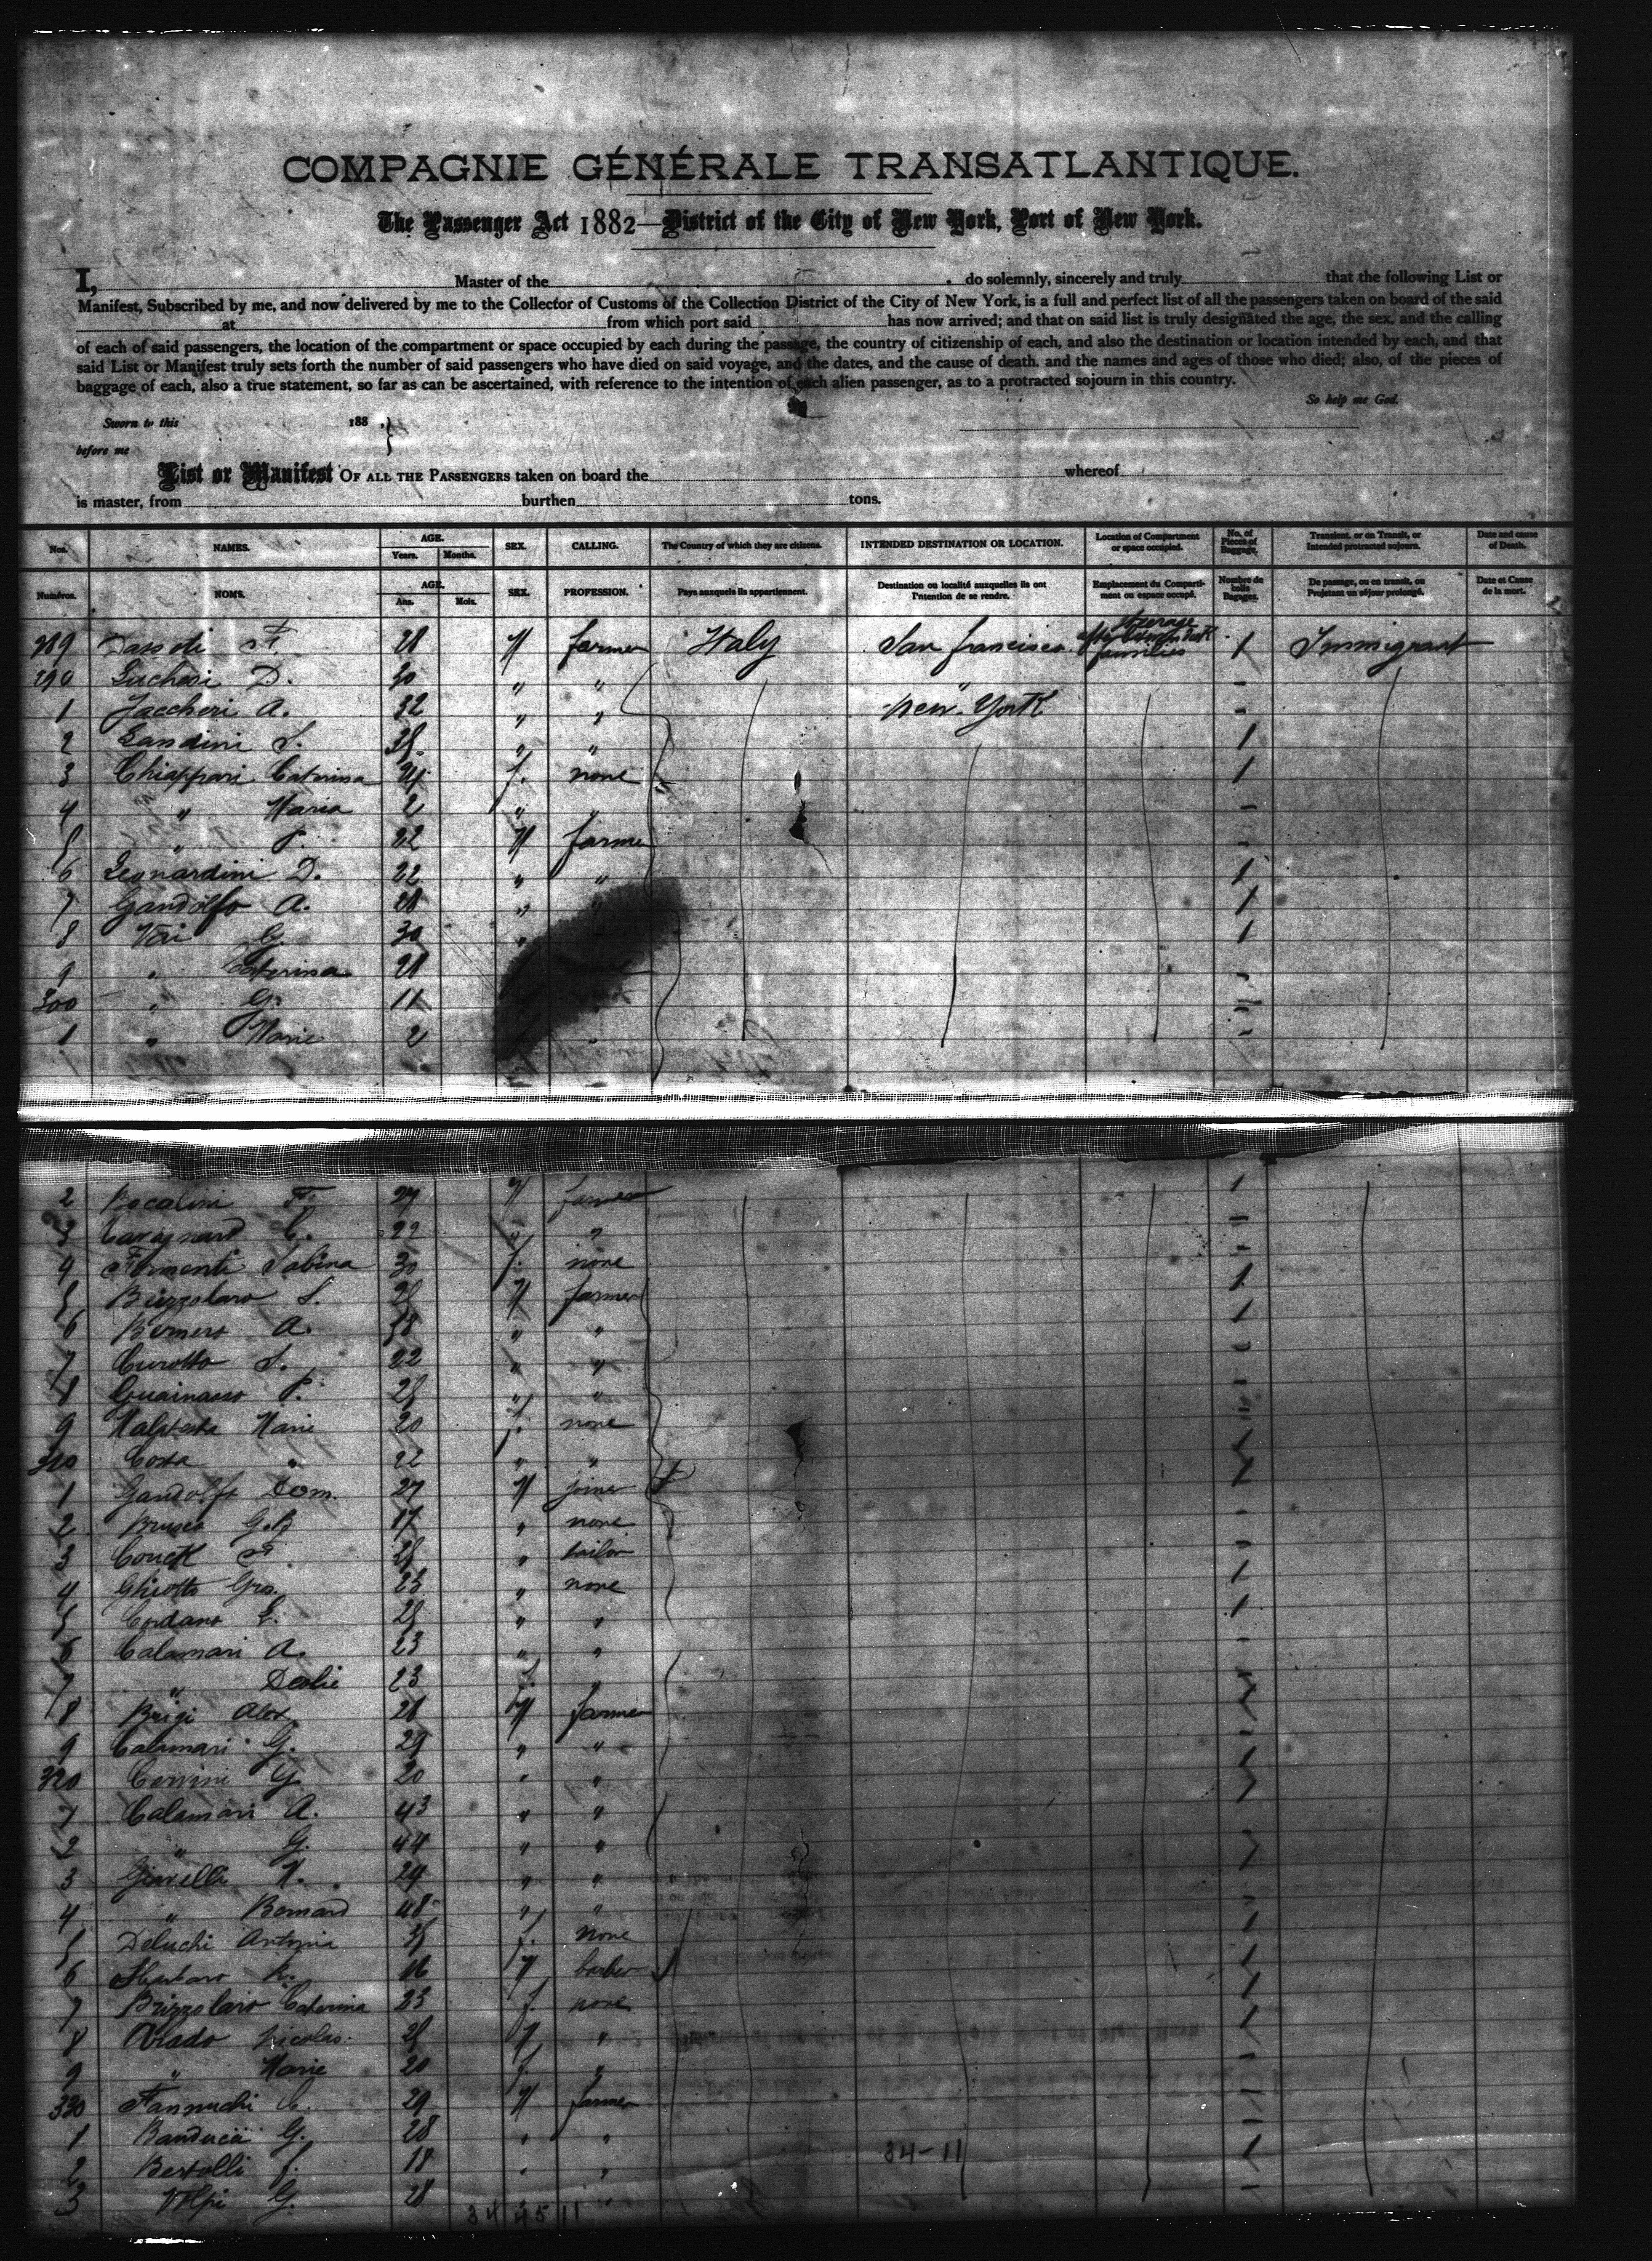 COMPAGNIE GÉNÉRALE TRANSATLANTIQUE.
The Passenger Act 1882—District of the City of New York, Port of New York.
I, Master of the , do solemnly, sincerely and truly that the following List or
Manifest, Subscribed by me, and now delivered by me to the Collector of Customs of the Collection District of the City of New York, is a full and perfect list of all the passengers taken on board of the said
at from which port said has now arrived; and that on said list is truly designated the age, the sex, and the calling
of each of said passengers, the location of the compartment or space occupied by each during the passage, the country of citizenship of each, and also the destination or location intended by each, and that
said List or Manifest truly sets forth the number of said passengers who have died on said voyage, and the dates, and the cause of death, and the names and ages of those who died; also, of the pieces of
baggage of each, also a true statement, so far as can be ascertained, with reference to the intention of each alien passenger, as to a protracted sojourn in this country.
So help me God.
Sworn to this 188 .
before me
List or Manifest OF ALL THE PASSENGERS taken on board the whereof
is master, from burthen tons.
Nos. NAMES. AGE. Years. Months. SEX. CALLING. The Country of which they are citizens. INTENDED DESTINATION OR LOCATION. Location of Compartment or space occupied. No. of Pieces of Baggage. Transient, or on Transit, or Intended protracted sojourn. Date and cause of Death.
Numéros. NOMS. AGE. Ans. Mois. SEX. PROFESSION. Pays auxquels ils appartiennent. Destination ou localité auxquelles ils ont l'intention de se rendre. Emplacement du Compartiment ou espace occupé. Nombre de colis Bagages. De passage, ou en transit, ou Projetant un séjour prolongé. Date et Cause de la mort.
289 Dassoti F. 28 M farmer Italy San francisco Steerage families 1 Immigrant
290 Luchesi D. 30 " " " -
1 Jaccheri A. 32 " " New-York -
2 Landini S. 35 " " 1
3 Chiappari Caterina 24 f. none 1
4 " Maria 2 " " -
5 " P. 22 M farmer -
6 Leonardini D. 22 " " 1
7 Gandolfo A. 28 " " 1
8 Vai G. 30 " 1
9 " Caterina 28 -
300 " G. 11 -
1 " Marie 2 " -
2 Bocalini F. 27 M farmer 1
3 Cavagnard C. 22 " " -
4 Formenti Sabina 30 f. none -
5 Buzzolaro S. 25 M farmer 1
6 Bernero A. 38 " " 1
7 Curotto S. 22 " " -
8 Guainasso P. 25 " " -
9 Malatesta Marie 20 f. none "
310 Costa " 22 " " 1
1 Gandolfo Dom. 27 M joiner 1
2 Brusco G.B 17 " none -
3 Couck F. 25 " tailor -
4 Ghiotto Gio. 23 " none 1
5 Cordano E. 25 " " 1
6 Calamari A. 23 " " -
7 " 23 f. "
8 Brigi Alex 28 M farmer
9 Calamari G. 29 " " -
320 Cervini G. 20 " " 1
1 Calamari A. 43 " "
2 " G. 44 " "
3 Ginelli N. 24 " "
4 " Bernard 48 " "
5 Deluchi Antonia 35 f. none 1
6 Sbarbaro R. 16 M barber 1
7 Brizzolaro Caterina 23 f. none 1
8 Arado Nicolas. 25 M " 1
9 " Marie 20 f. " -
330 Fannuchi C. 29 M farmer -
1 Banducci G. 28 " " -
2 Bertolli f. 18 " " 1
3 Volpi G. 28 " " -
34-11
34 45 11